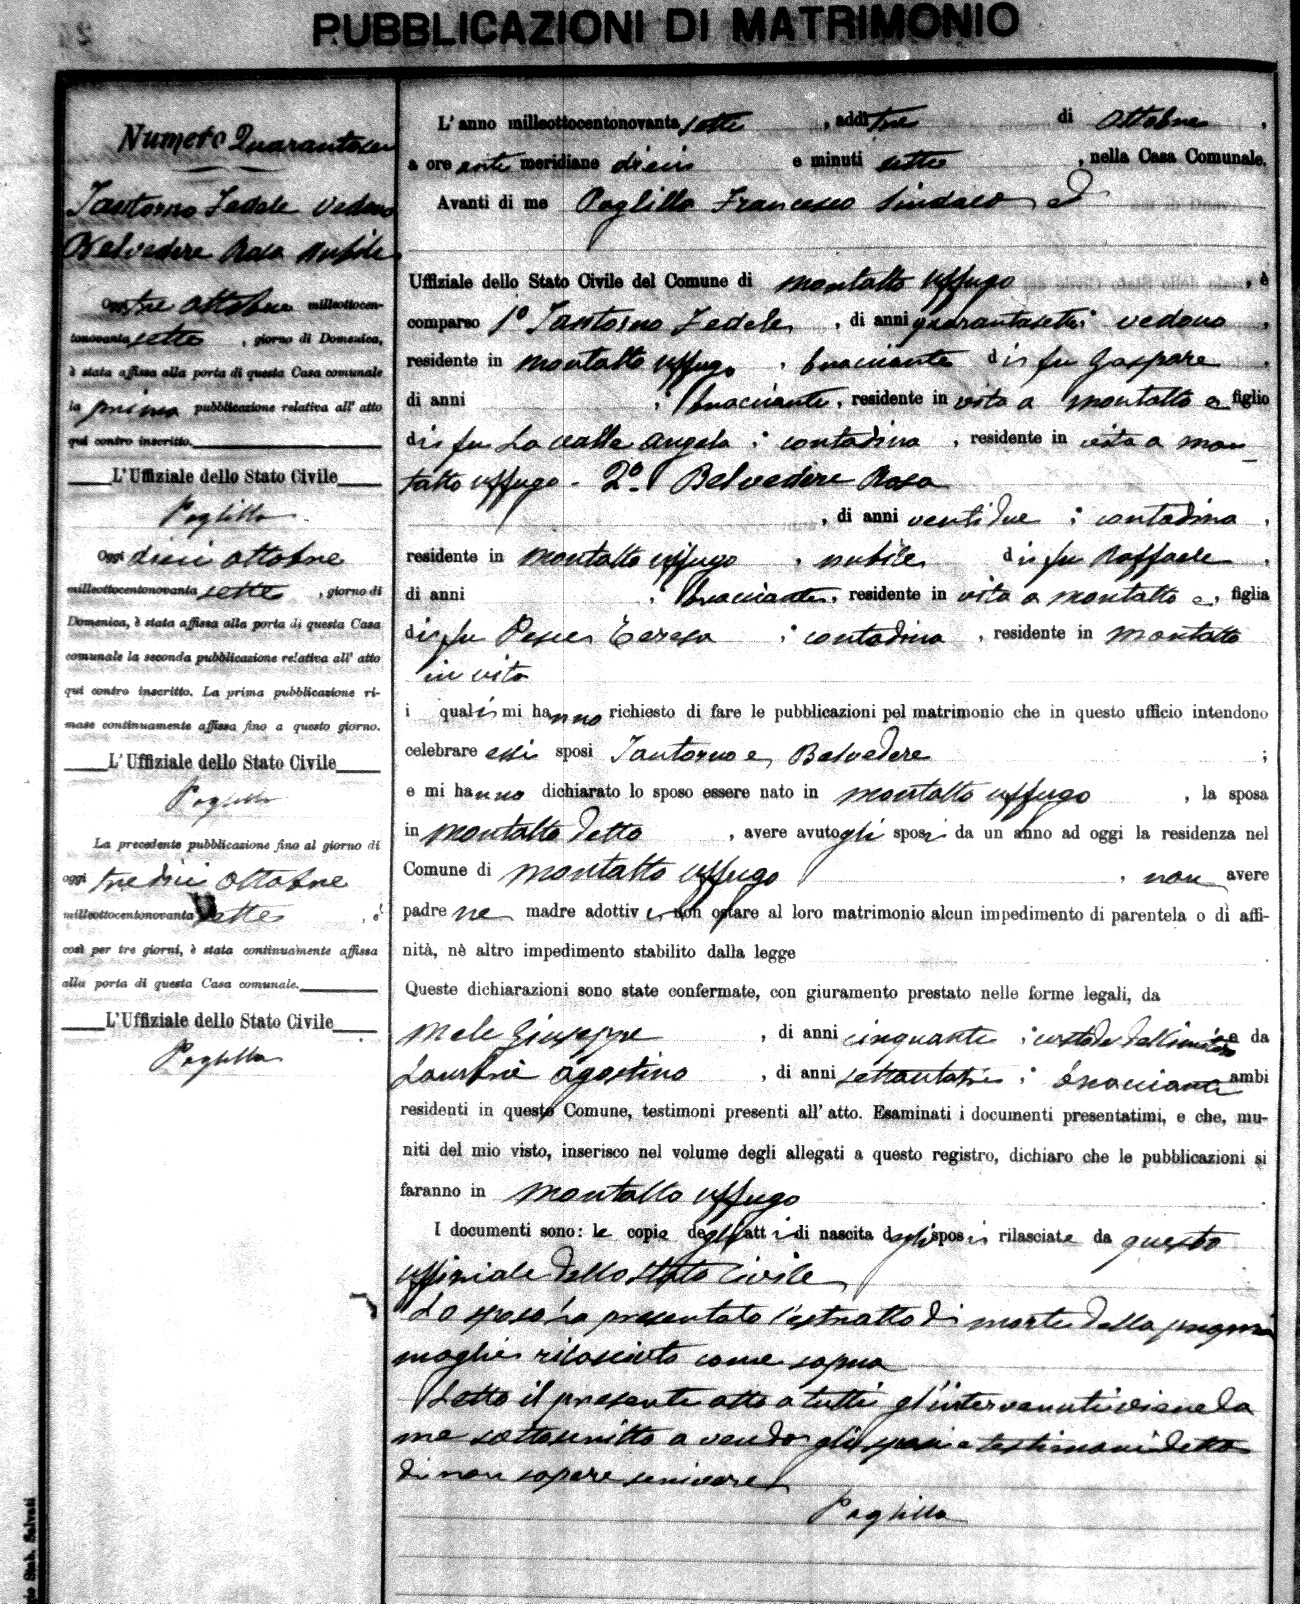 PUBBLICAZIONI DI MATRIMONIO
Numero Quarantasei
Tantorno Fedele vedovo
Belvedere Rosa nubile
Oggi tre ottobre milleottocen-
tonovanta sette, giorno di Domenica,
è stata affissa alla porta di questa Casa comunale
la prima pubblicazione relativa all' atto
qui contro inscritto.
L'Uffiziale dello Stato Civile
Paglilla
Oggi dieci ottobre
milleottocentonovanta sette, giorno di
Domenica, è stata affissa alla porta di questa Casa
comunale la seconda pubblicazione relativa all' atto
qui contro inscritto. La prima pubblicazione ri-
mase continuamente affissa fino a questo giorno.
L'Uffiziale dello Stato Civile
Paglilla
La precedente pubblicazione fino al giorno di
oggi tredici ottobre
milleottocentonovanta sette, è
così per tre giorni, è stata continuamente affissa
alla porta di questa Casa comunale.
L'Uffiziale dello Stato Civile
Paglilla
L' anno milleottocentonovanta sette, addì tre di ottobre,
a ore anti meridiane dieci e minuti sette, nella Casa Comunale.
Avanti di me Paglilla Francesco Sindaco ed
Uffiziale dello Stato Civile del Comune di Montalto Uffugo, è
comparso 1º Tantorno Fedele, di anni quarantasette; vedovo,
residente in Montalto Uffugo, bracciante di fu Gaspare,
di anni ; bracciante, residente in vita a Montalto e figlio
di fu La Valle Angela; contadina, residente in vita a Mon-
talto Uffugo - 2º Belvedere Rosa
, di anni ventidue; contadina,
residente in Montalto Uffugo, nubile di fu Raffaele,
di anni ; bracciante, residente in vita a Montalto e, figlia
di fu Pesce Teresa; contadina, residente in Montalto
in vita
i quali mi hanno richiesto di fare le pubblicazioni pel matrimonio che in questo ufficio intendono
celebrare essi sposi Tantorno e Belvedere;
e mi hanno dichiarato lo sposo essere nato in Montalto Uffugo, la sposa
in Montalto detto, avere avuto gli sposi da un anno ad oggi la residenza nel
Comune di Montalto Uffugo, non avere
padre ne madre adottivi e non ostare al loro matrimonio alcun impedimento di parentela o di affi-
nità, nè altro impedimento stabilito dalla legge
Queste dichiarazioni sono state confermate, con giuramento prestato nelle forme legali, da
Mele Giuseppe, di anni cinquanta; custode del Cimitero e da
Agostino, di anni; bracciante ambi
residenti in questo Comune, testimoni presenti all' atto. Esaminati i documenti presentatimi, e che, mu-
niti del mio visto, inserisco nel volume degli allegati a questo registro, dichiaro che le pubblicazioni si
faranno in Montalto Uffugo.
I documenti sono: le copie degli atti di nascita degli sposi rilasciate da questo
uffiziale dello Stato Civile
Lo sposo ha presentato l'estratto di morte della propria
moglie rilasciato come sopra
Letto il presente atto a tutti gl'intervenuti viene da
me sottoscritto avendo gli sposi e testimoni detto
di non sapere scrivere
Paglilla
Stab. Salvati